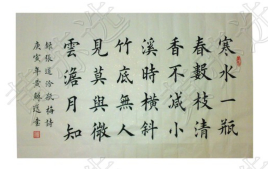 寒水一瓶
春數枝清
香不減小
溪時橫斜
竹底無人
見莫與微
雲澹月知
錄張道洽瓶梅詩
庚寅年黃書